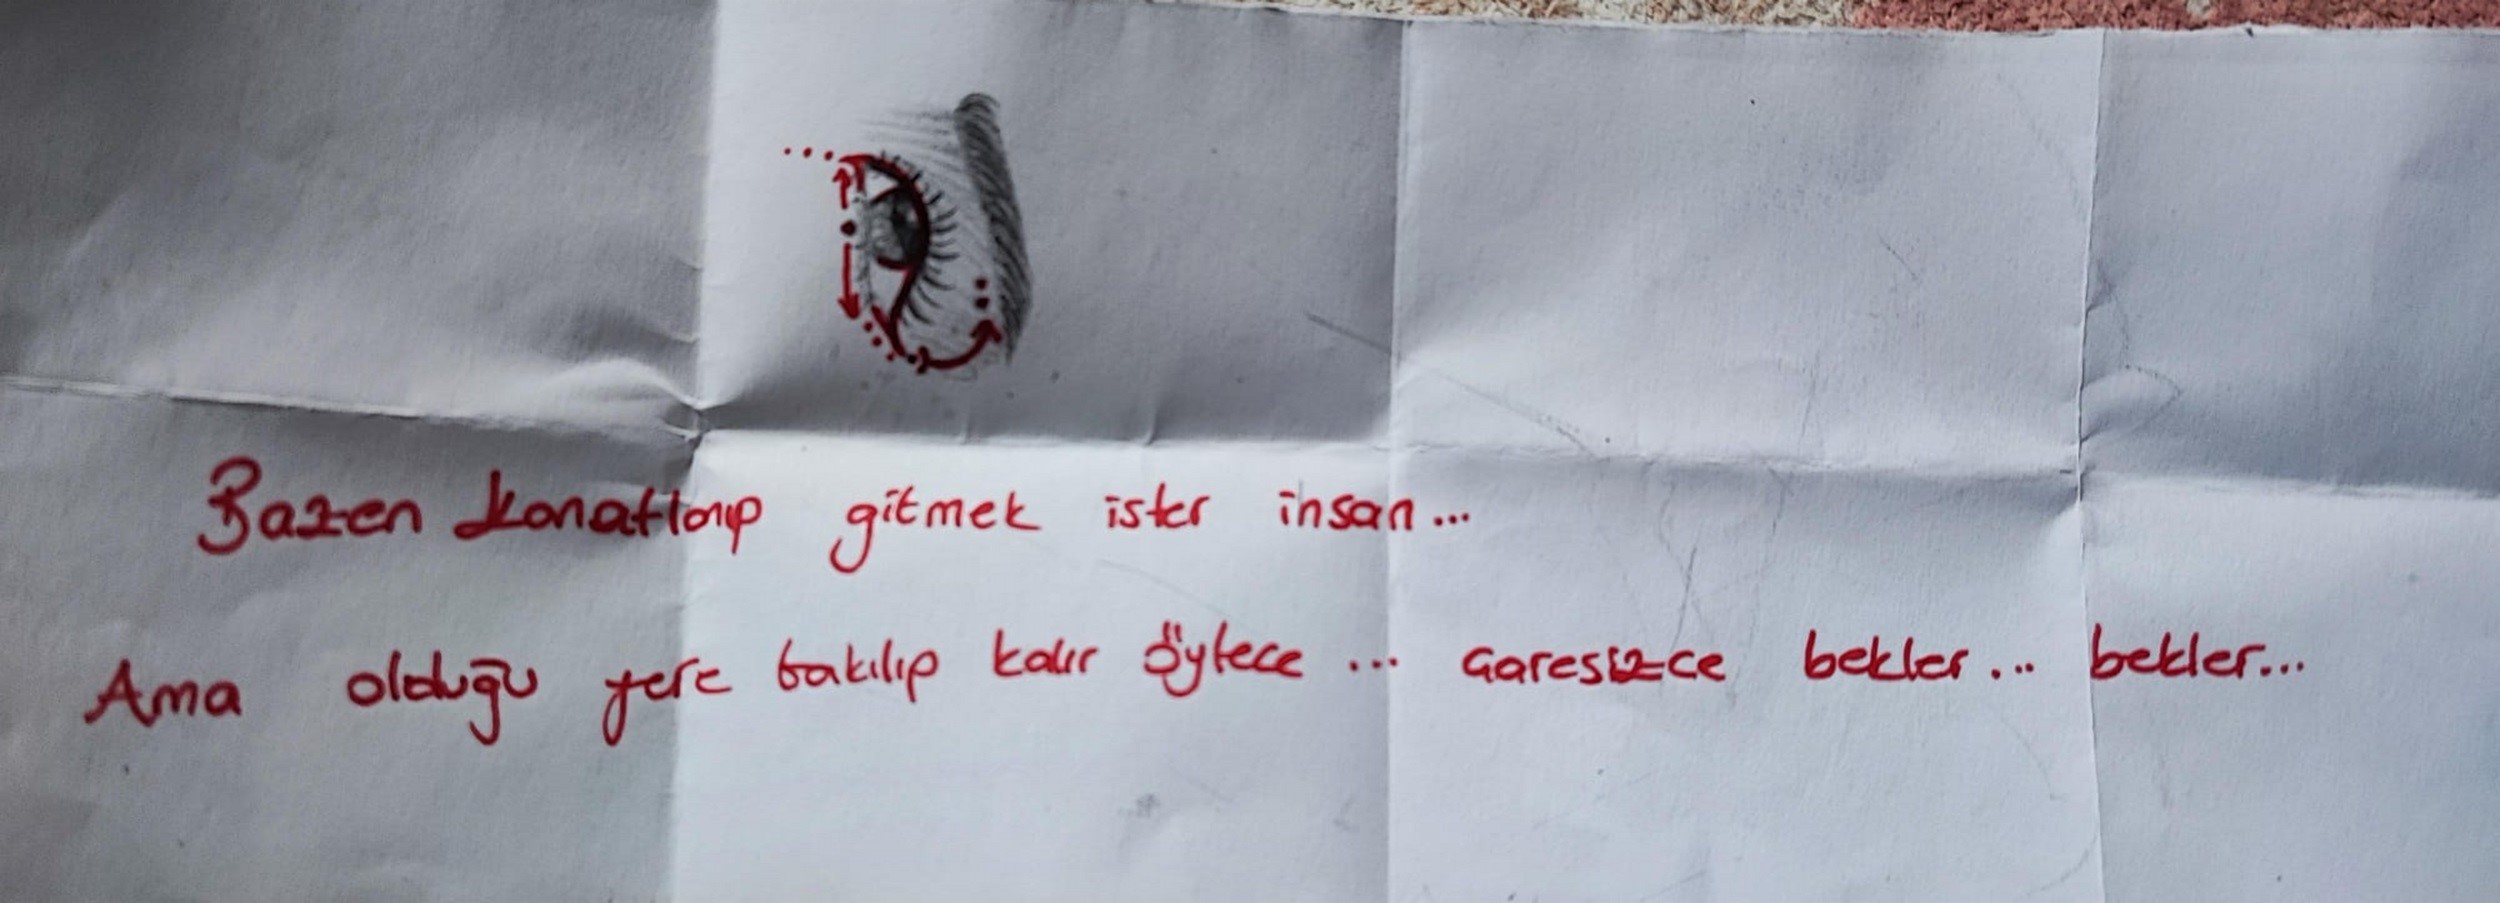 Bazen kanatlanıp gitmek ister insan...
Ama olduğu yere bakılıp kalır öylece ... çaresizce bekler... bekler...